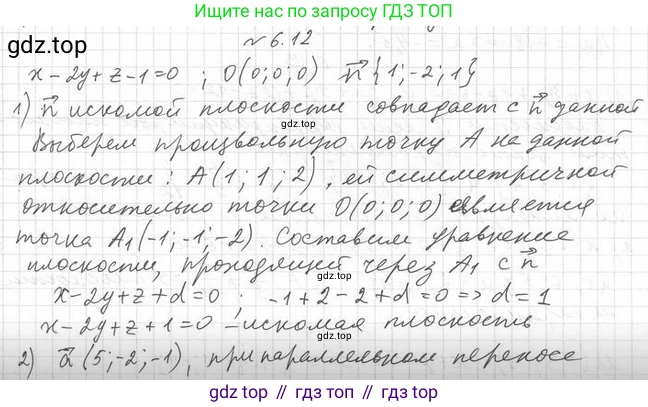 Ищите нас по запросу ГДЗ ТОП
gdz top
№ 6.12
x - 2y + z - 1 = 0 ; O(0; 0; 0) n⃗ {1; -2; 1}
1) n⃗ искомой плоскости совпадает с n⃗ данной
gdz.top
Выберем произвольную точку A на данной
плоскости: A(1; 1; 2), ей симметричной
относительно точки O(0; 0; 0) является
точка A₁(-1; -1; -2). Составим уравнение
плоскости, проходящей через A₁ с n⃗
x - 2y + z + d = 0 ; -1 + 2 - 2 + d = 0 => d = 1
x - 2y + z + 1 = 0 - искомая плоскость
gdz.top
2) a⃗ (5; -2; -1), при параллельном переносе
gdz top
gdz top // гдз топ // gdz top // гдз топ